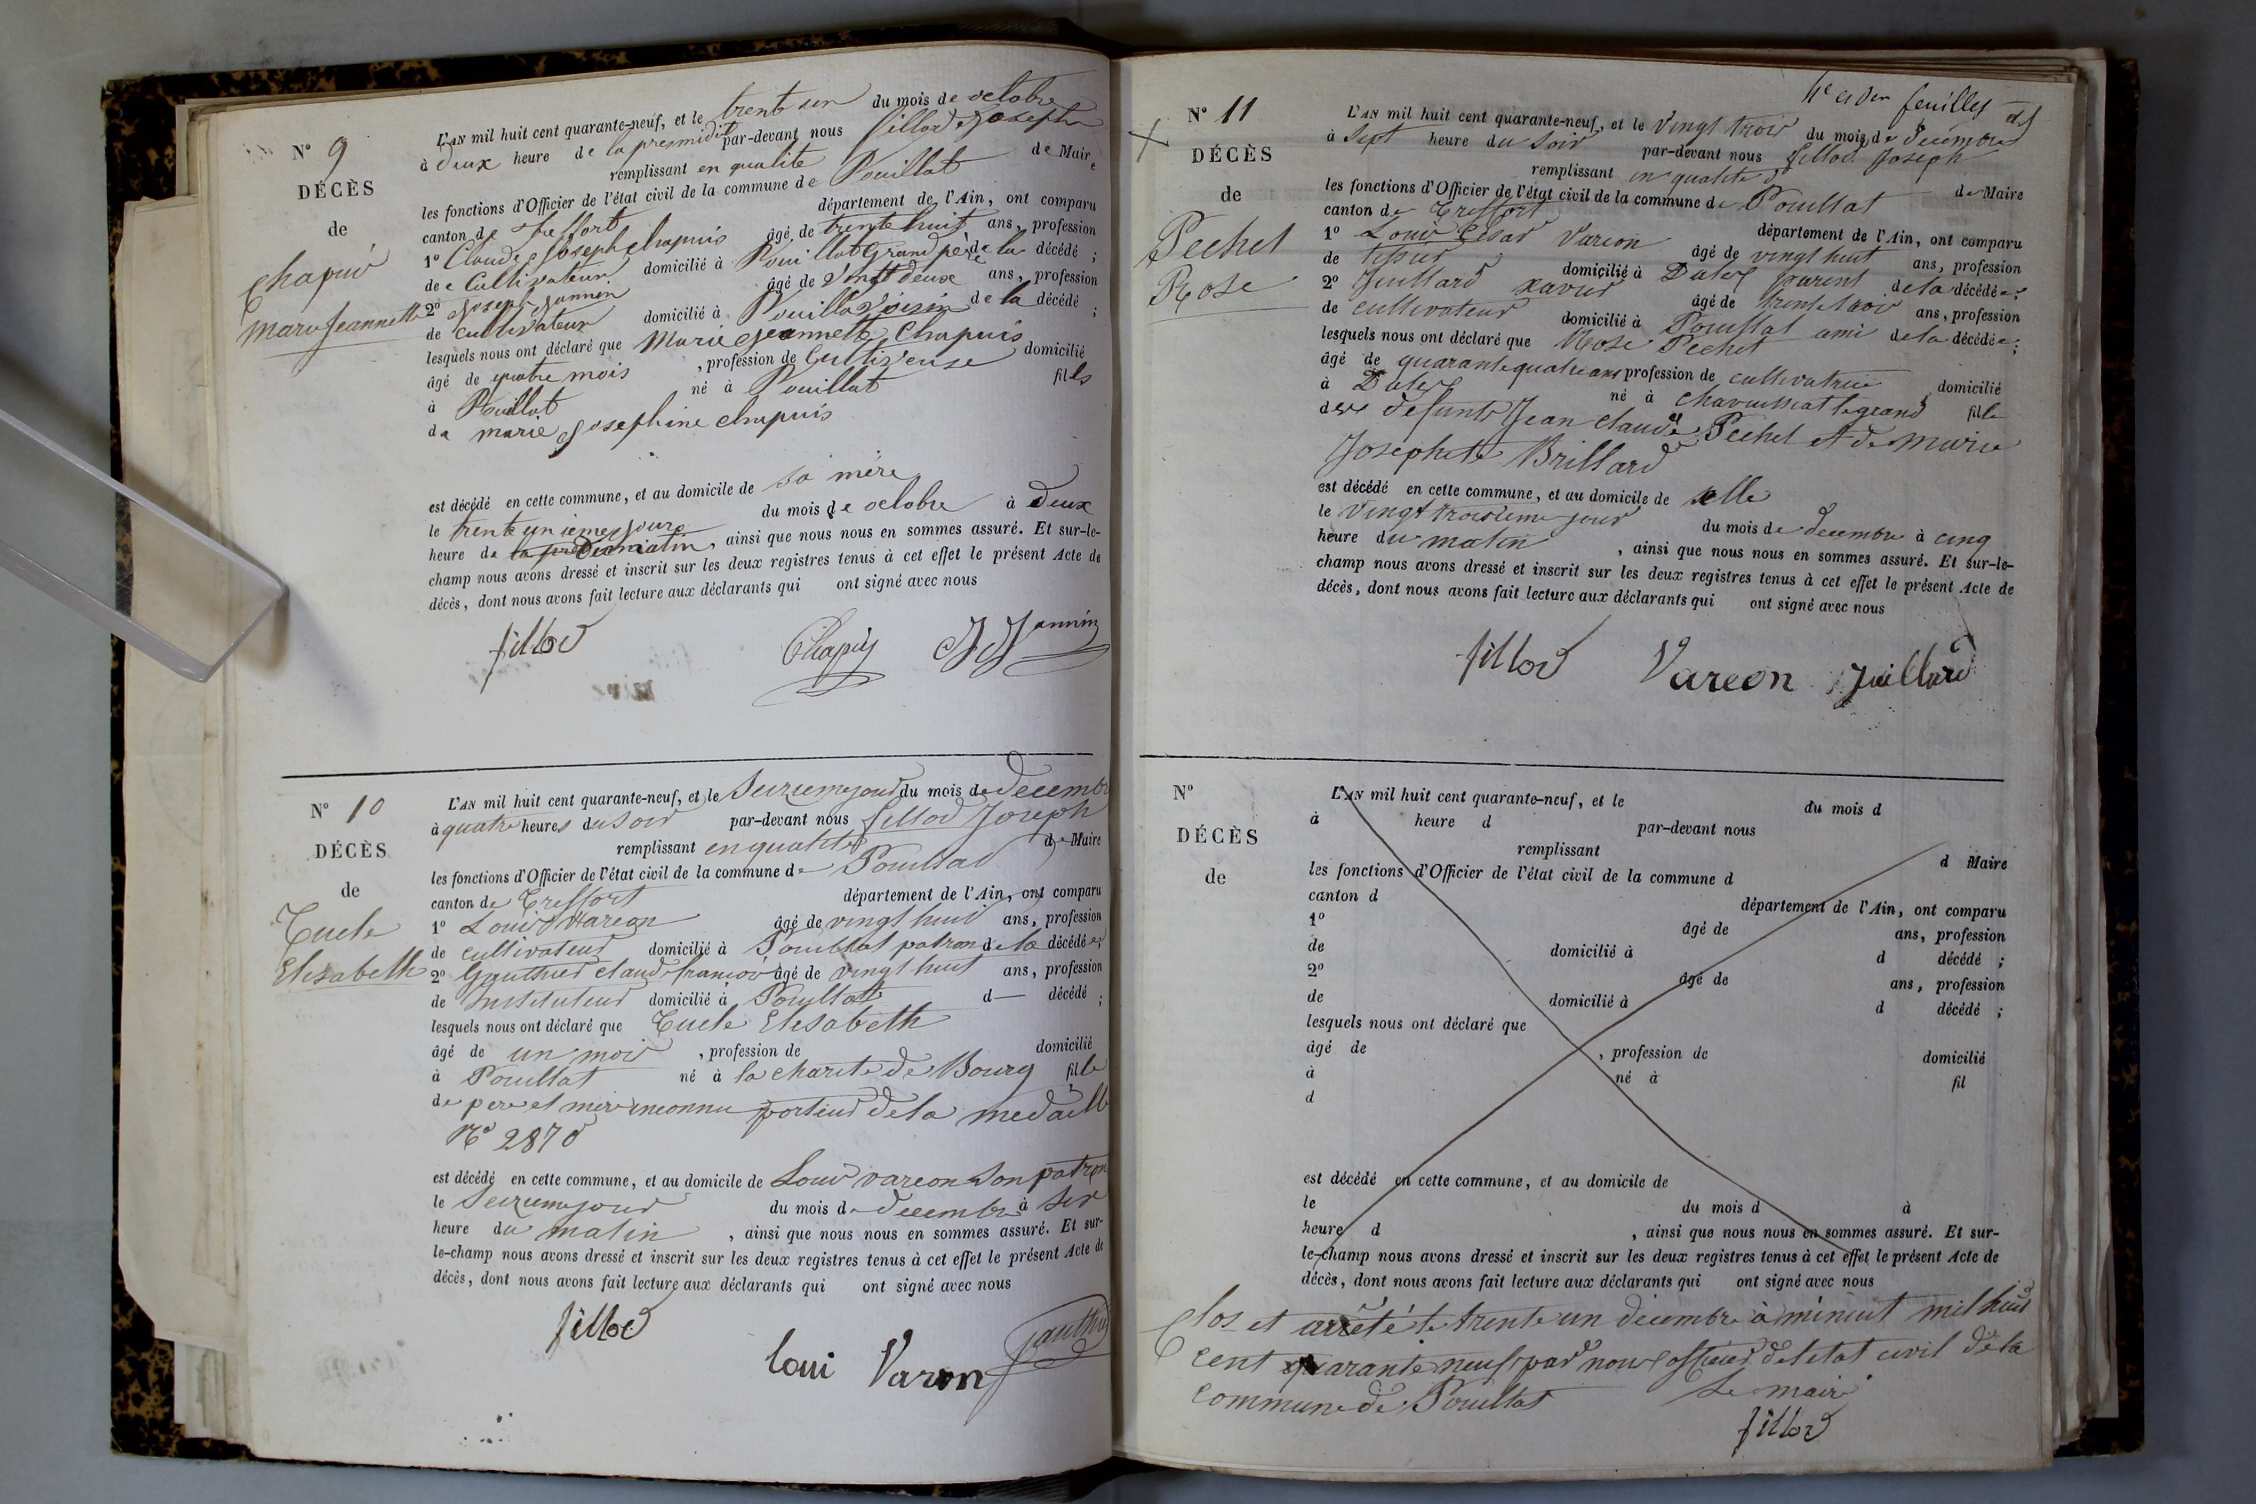 N° 9
DÉCÈS
de
Chapuis
Marie Jeannette
L'AN mil huit cent quarante-neuf, et le trente un du mois de octobre
à deux heure de la presmidit par-devant nous fillod Joseph
remplissant en qualité de Maire
les fonctions d'Officier de l'état civil de la commune de Pouillat
canton de treffort département de l'Ain, ont comparu
1° Claude Joseph chapuis âgé de trente huit ans, profession
de Cultivateur domicilié à Pouillat Grand père de la décédé ;
2° Joseph Jannin âgé de vingt deux ans, profession
de cultivateur domicilié à Pouillat voisin de la décédé ;
lesquels nous ont déclaré que Marie Jeannette Chapuis
âgé de quatre mois , profession de Cultiveuse domicilié
à Pouillat né à Pouillat fils
de marie Josephine chapuis
est décédé en cette commune, et au domicile de sa mère
le trente unieme jour du mois de octobre à deux
heure de matin, ainsi que nous nous en sommes assuré. Et sur-le-
champ nous avons dressé et inscrit sur les deux registres tenus à cet effet le présent Acte de
décès, dont nous avons fait lecture aux déclarants qui ont signé avec nous
fillod Chapuy J J Jannin
N° 10
DÉCÈS
de
Tucle
Elisabeth
L'AN mil huit cent quarante-neuf, et le Seizieme jour du mois de decembre
à quatre heures du soir par-devant nous fillod Joseph
remplissant en qualité de Maire
les fonctions d'Officier de l'état civil de la commune de Pouillat
canton de Treffort département de l'Ain, ont comparu
1° Louis Vareon âgé de vingt huit ans, profession
de cultivateur domicilié à Pouillat patron de la décédée ;
2° Gauthier claude francois âgé de vingt huit ans, profession
de Instituteur domicilié à Pouillat d— décédé ;
lesquels nous ont déclaré que Tucle Elisabeth
âgé de un mois , profession de domicilié
à Pouillat né à la charité de Bourg fille
de pere et mere inconnu porteur de la medaille
N° 2870
est décédé en cette commune, et au domicile de Louis vareon son patron
le Seizieme jour du mois de decembre à six
heure du matin , ainsi que nous nous en sommes assuré. Et sur-
le-champ nous avons dressé et inscrit sur les deux registres tenus à cet effet le présent Acte de
décès, dont nous avons fait lecture aux déclarants qui ont signé avec nous
fillod loui Varon Gauthier
4e et der feuilles
N° 11
DÉCÈS
de
Pechet
Rose
L'AN mil huit cent quarante-neuf, et le vingt trois du mois de décembre
à Sept heure du soir par-devant nous fillod Joseph
remplissant en qualité de Maire
les fonctions d'Officier de l'état civil de la commune de Pouillat
canton de Treffort département de l'Ain, ont comparu
1° Louis César Vareon âgé de vingt huit ans, profession
de tissier domicilié à parent de la décédée ;
2° Juillard xavier âgé de trente trois ans, profession
de cultivateur domicilié à Pouillat ami de la décédée ;
lesquels nous ont déclaré que Rose Pechet
âgé de quarante quatre ans profession de cultivatrice domicilié
à né à chavussiat le grand fille
des defunts Jean claude Pechet et de marie
Josephete Brillard
est décédé en cette commune, et au domicile de selle
le vingt troisieme jour du mois de decembre à cinq
heure du matin , ainsi que nous nous en sommes assuré. Et sur-le-
champ nous avons dressé et inscrit sur les deux registres tenus à cet effet le présent Acte de
décès, dont nous avons fait lecture aux déclarants qui ont signé avec nous
fillod Vareon Juillard
N°
DÉCÈS
de
L'AN mil huit cent quarante-neuf, et le du mois d
à heure d par-devant nous
remplissant d Maire
les fonctions d'Officier de l'état civil de la commune d
canton d département de l'Ain, ont comparu
1° âgé de ans, profession
de domicilié à d décédé ;
2° âgé de ans, profession
de domicilié à d décédé ;
lesquels nous ont déclaré que
âgé de , profession de domicilié
à né à fil
d
est décédé en cette commune, et au domicile de
le du mois d à
heure d , ainsi que nous nous en sommes assuré. Et sur-
le-champ nous avons dressé et inscrit sur les deux registres tenus à cet effet le présent Acte de
décès, dont nous avons fait lecture aux déclarants qui ont signé avec nous
Clos et arrêté le trente un décembre à minuit mil huit
cent quarante neuf par nous officier de l'etat civil de la
commune de Pouillat le maire
fillod